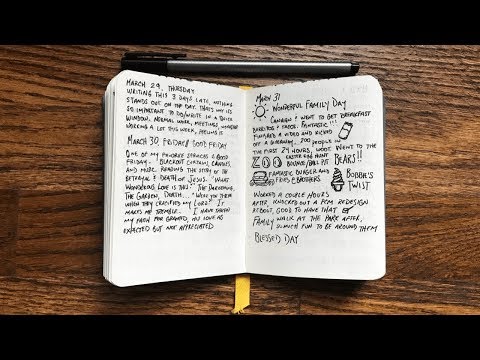 MARCH 29, THURSDAY
WRITING THIS 3 DAYS LATE, NOTHING
STANDS OUT ON THE DAY. THAT'S WHY IT'S
SO IMPORTANT TO DO/WRITE IN A QUICK
WINDOW. NORMAL WORK, MEETINGS,
WORKING A LOT THIS WEEK, FEELING IS
MARCH 30, FRIDAY/GOOD FRIDAY
ONE OF MY FAVORITE SERVICES @ GOOD
FRIDAY. BLACKOUT CURTAINS, CANDLES,
AND MUSIC. READING THE STORY OF THE
BETRAYAL & DEATH OF JESUS. "WHAT
WONDEROUS LOVE IS THIS." THE DARKENING,
THE GARDEN, DEATH... "WERE YOU THERE
WHEN THEY CRUCIFIED MY LORD?" IT
MAKES ME TREMBLE. I HAVE TAKEN
MY FAITH FOR GRANTED, HIS LOVE IS
EXPECTED BUT NOT APPRECIATED
MARCH 31
WONDERFUL FAMILY DAY
& I WENT TO GET BREAKFAST
BURRITOS & TACOS. FANTASTIC!!!
FINISHED A VIDEO AND KICKED
OFF A GIVEAWAY. 200 PEOPLE IN
THE FIRST 24 HOURS, WOOT. WENT TO THE
ZOO
EASTER EGG HUNT
BOUNCE/BALL PIT
BEARS!!
FANTASTIC BURGER AND
FRIES @ BROTHERS
BOBBA'S
TWIST
WORKED A COUPLE HOURS
AFTER, KNOCKED OUT A PCM REDESIGN
REBOOT, GOOD TO HAVE THAT
FAMILY WALK AT THE PARK AFTER,
SO MUCH FUN TO BE AROUND THEM
BLESSED DAY